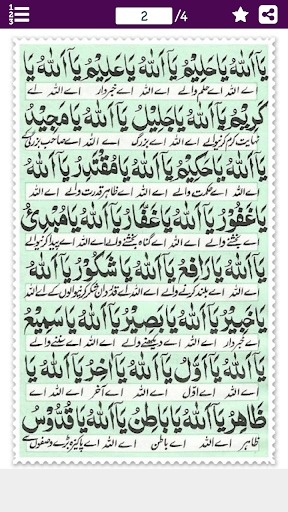 2 /4
یَآ اَللهُ یَا حَلِیْمُ یَآ اَللهُ یَا عَلِیْمُ یَآ اَللهُ یَا
اے اللہ اے حلم والے اے اللہ اے خبردار اے اللہ اے
کَرِیْمُ یَآ اَللهُ یَا جَلِیْلُ یَآ اَللهُ یَا مَجِیْدُ
نہایت کرم کرنیوالے اے اللہ اے بزرگ اے اللہ اے صاحب بزرگی
یَآ اَللهُ یَا حَکِیْمُ یَآ اَللهُ یَا مُقْتَدِرُ یَآ اَللهُ
اے اللہ اے حکمت والے اے اللہ اے ظاہر قدرت والے اے اللہ
یَا غَفُوْرُ یَآ اَللهُ یَا غَفَّارُ یَآ اَللهُ یَا مُبْدِئُ
اے بخشنے والے اے اللہ اے گناہ بخشنے والے اے اللہ اے پیدا کرنیوالے
یَآ اَللهُ یَا رَافِعُ یَآ اَللهُ یَا شَکُوْرُ یَآ اَللهُ
اے اللہ اے بلند کرنے والے اے اللہ اے قدردان شکر کرنیوالوں کے اے اللہ
یَا خَبِیْرُ یَآ اَللهُ یَا بَصِیْرُ یَآ اَللهُ یَا سَمِیْعُ
اے خبردار اے اللہ اے دیکھنے والے اے اللہ اے سننے والے
یَآ اَللهُ یَا اَوَّلُ یَآ اَللهُ یَا اٰخِرُ یَآ اَللهُ یَا
اے اللہ اے اوّل اے اللہ اے آخر اے اللہ اے
ظَاهِرُ یَآ اَللهُ یَا بَاطِنُ یَآ اَللهُ یَا قُدُّوْسُ
ظاہر اے اللہ اے باطن اے اللہ اے پاکیزہ بڑے وصفوں سے